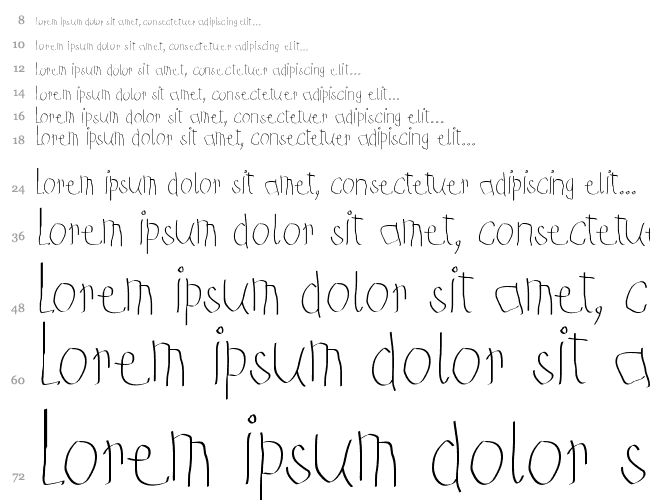 8 Lorem ipsum dolor sit amet, consectetuer adipiscing elit...
10 Lorem ipsum dolor sit amet, consectetuer adipiscing elit...
12 Lorem ipsum dolor sit amet, consectetuer adipiscing elit...
14 Lorem ipsum dolor sit amet, consectetuer adipiscing elit...
16 Lorem ipsum dolor sit amet, consectetuer adipiscing elit...
18 Lorem ipsum dolor sit amet, consectetuer adipiscing elit...
24 Lorem ipsum dolor sit amet, consectetuer adipiscing elit...
36 Lorem ipsum dolor sit amet, consectetu
48 Lorem ipsum dolor sit amet, c
60 Lorem ipsum dolor sit a
72 Lorem ipsum dolor s